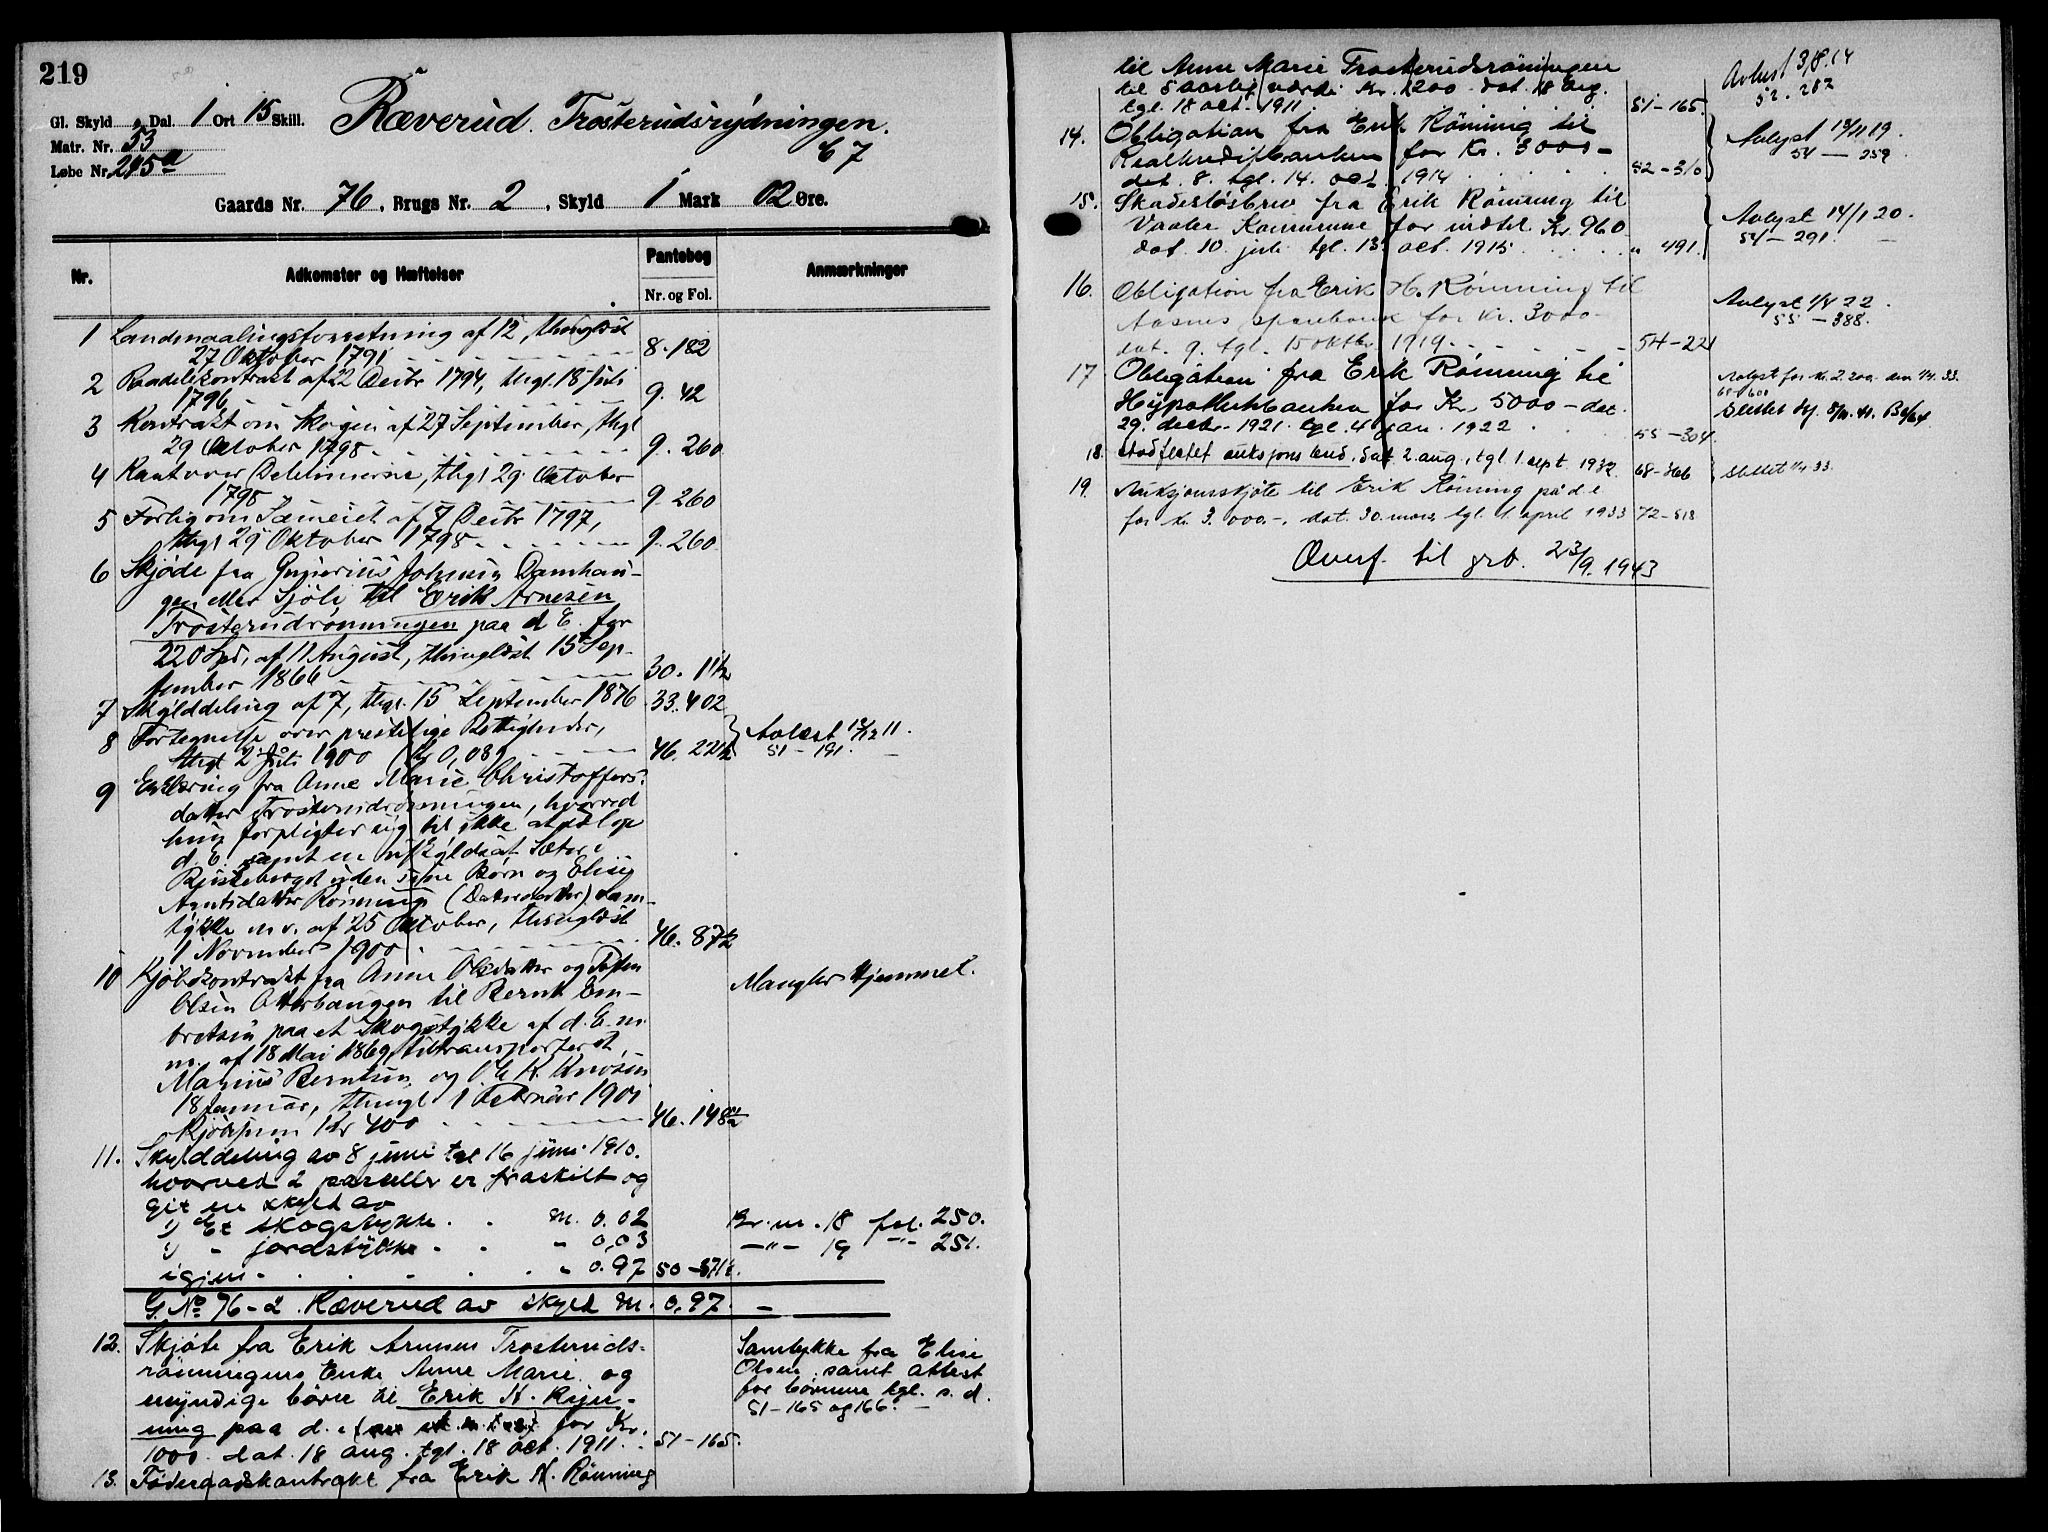 219
Gl. Skyld Dal. 1 Ort 15 Skill. Ræverud. Trosterudsrydningen.
Matr. Nr. 53
C 7
Løbe Nr. 215a
Gaards Nr. 76, Brugs Nr. 2, Skyld 1 Mark 02 Øre.
Nr. Adkomster og Hæftelser Pantebog Anmærkninger
Nr. og Fol.
1 Landmaalingsforretning af 12, thinglæst
27 Oktober 1791 8. 182
2 af 22 Decbr 1794, thgl. 18 Juli
1796 9. 42
3 Kontrakt om Skogen af 27 September, thgl
29 Oktober 1798 9. 260
4 Kart over Delelinierne, thgl 29 Oktober
1798 9. 260
5 Forlig om Sameiet af 7 Decbr 1797,
thgl 29 Oktober 1798 9. 260
6 Skjøde fra Gunerius Johnsen Damhau-
gen eller Sjøli til Erik Arnesen
Trosterudrønningen paa d. E. for
220 Spd, af 11 August, thinglæst 15 Sep-
tember 1866 30. 112
7 Skylddeling af 7, thgl. 15 September 1876 33. 402
8 Fortegnelse over prestelige Rettigheder, Avlæst 12/12 11.
thgl 2 Juli 1900 (Kr 0,08) 46. 22 1/2 51 - 191.
9 Erklæring fra Anne Marie Christoffers-
datter Trosterudrønningen, hvorved
hun forpligter sig til ikke at
d. E. samt en uskyldsat Sæter i
uden sine Børn og Elise
Rønning (Datterdatter) sam-
tykke m.v. af 25 Oktober, thinglæst
1 November 1900 46. 87 1/2
10 Kjøbekontrakt fra Anne Olsdatter og Mangler Hjemmel.
Olsen Otterhaugen til Bernt Em-
bretsen paa et Skogstykke af d. E. m.
m. af 18 Mai 1869, tiltransporteret
Marius Berntsen og
18 Januar, thingl 1 Februar 1901
Kjøbesum Kr 400 46. 148
11. Skylddeling av 8 juni tgl 16 juni 1910.
hvorved 2 parceller er fraskilt og
git en skyld av
1) Et skogstykke. M. 0.02 Br. nr. 18 fol. 250.
2) " jordstykke. " 0,03 —"— 19 —"— 251.
igjen. " 0.97 50 - 571
G. No 76 - 2. Ræverud av skyld M. 0,97. —
12. Skjøte fra Erik Arnesen Trosteruds- Samtykke fra Elise
rønningens Enke Anne Marie og Olsen, samt attest
myndige børn til Erik H. Røn- for børnene tgl. s. d.
ning paa d. e. for Kr. 51 - 165 og 166. —
1000. dat. 18 aug. tgl. 18 oct. 1911. 51 - 165.
13. Føderaadskontrakt fra Erik H. Rønning
til Anne Marie Trosterudsrøningen Avlyst 3/8. 14
til 5 aarlig værdi Kr. 1200. dat. 18 aug. 52. 287
tgl. 18 oct. 1911. 51 - 165.
14. Obligation fra Erik Rønning til Avlyst 14/11 19.
Realkreditbanken for Kr. 3000 - 54 — 259.
dat. 8. tgl. 14. oct. 1914 52 - 310
15. Skadesløsbrev fra Erik Rønning til Avlyst 14/1 20.
Vaaler Kommune for indtil Kr. 960 54 - 291.
dat. 10. juli tgl. 13. oct. 1915 " 491.
16. Obligation fra Erik H. Rønning til Avlyst 1/4 22.
Aasnes sparebank for kr. 3000.- 55 - 388.
dat. 9. tgl. 15 oktbr. 1919. 54 - 221
17 Obligation fra Erik Rønning til Avlyst for kr. 2.200 den 1/4. 33.
Hypothekbanken for Kr. 5000 - dat.
29. decbr. 1921. tgl. 4 jan. 1922 55 - 304.
18. Stadfestet auksjonsbud, dat. 2. aug., tgl. 1. sept. 1932. 68 - 366 Slettet 1/4 33.
19. Auksjonsskjøte til Erik Rønning på d. e
for kr. 3.000.-. dat. 30. mars tgl. 1. april 1933 72 - 518
Overf. til grb. 23/9. 1943